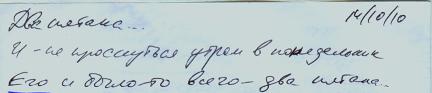 Два 14/10/10
И - не проснуться утром в понедельник
Его и было-то всего - два